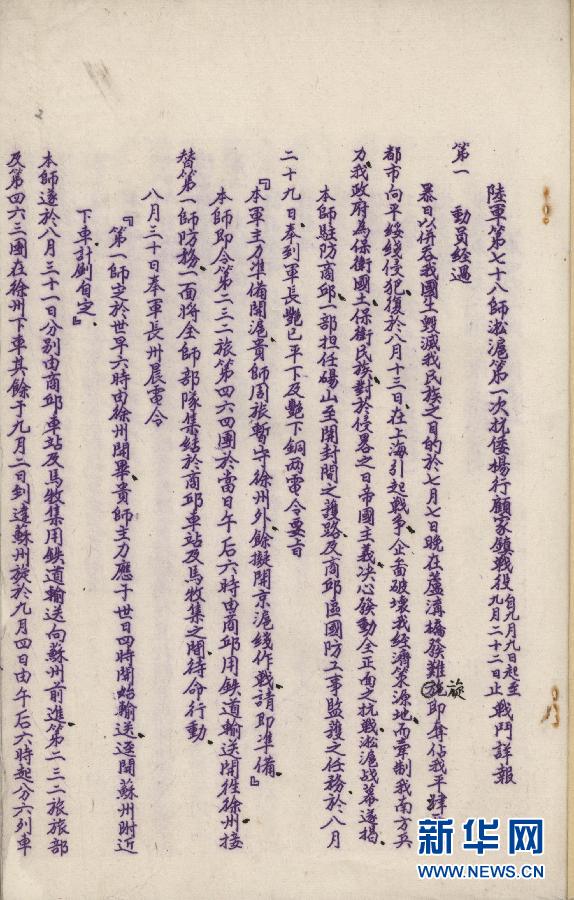 陸軍第七十八師淞滬第一次抗倭楊行顧家鎮戰役自九月九日起至九月二十二日止戰鬥詳報
第一　動員經過
暴日以併吞我國土毀滅我民族之目的於七月七日晚在蘆溝橋發難旋即奪佔我平
都市向平綏綫侵犯復於八月十三日在上海引起戰爭企畜破壞我經濟策源地而牽制我南方兵
力我政府為保衛國土保衛民族對於侵畧之日帝國主義决心發動全正面之抗戰淞滬战幕遂揭
本師駐防商邱一部担任碭山至開封間之護路及商邱區國防工事監護之任務於八月
二十九日奉到軍長艷巳平下及艷下銅兩電令要旨
『本軍主力準備開滬貴師周旅暫守徐州外餘擬開京滬綫作戰請即準備』
本師即令第二三二旅第四六四團於當日午后六時由商邱用鉄道輸送開往徐州接
替第一師防務一面將全師部隊集結於商邱車站及馬牧集之間待命行動
八月三十日奉軍長卅晨電令
『第一師定於世早六時由徐州開畢貴師主力應于世日四時開始輸送逕開蘇州附近
下車計劃自定』
本師遂於八月三十一日分別由商邱車站及馬牧集用鉄道輸送向蘇州前進第二三二旅旅部
及第四六三團在徐州下車其餘于九月二日到達蘇州旋於九月四日由午后六時起分六列車
新华网
WWW.NEWS.CN